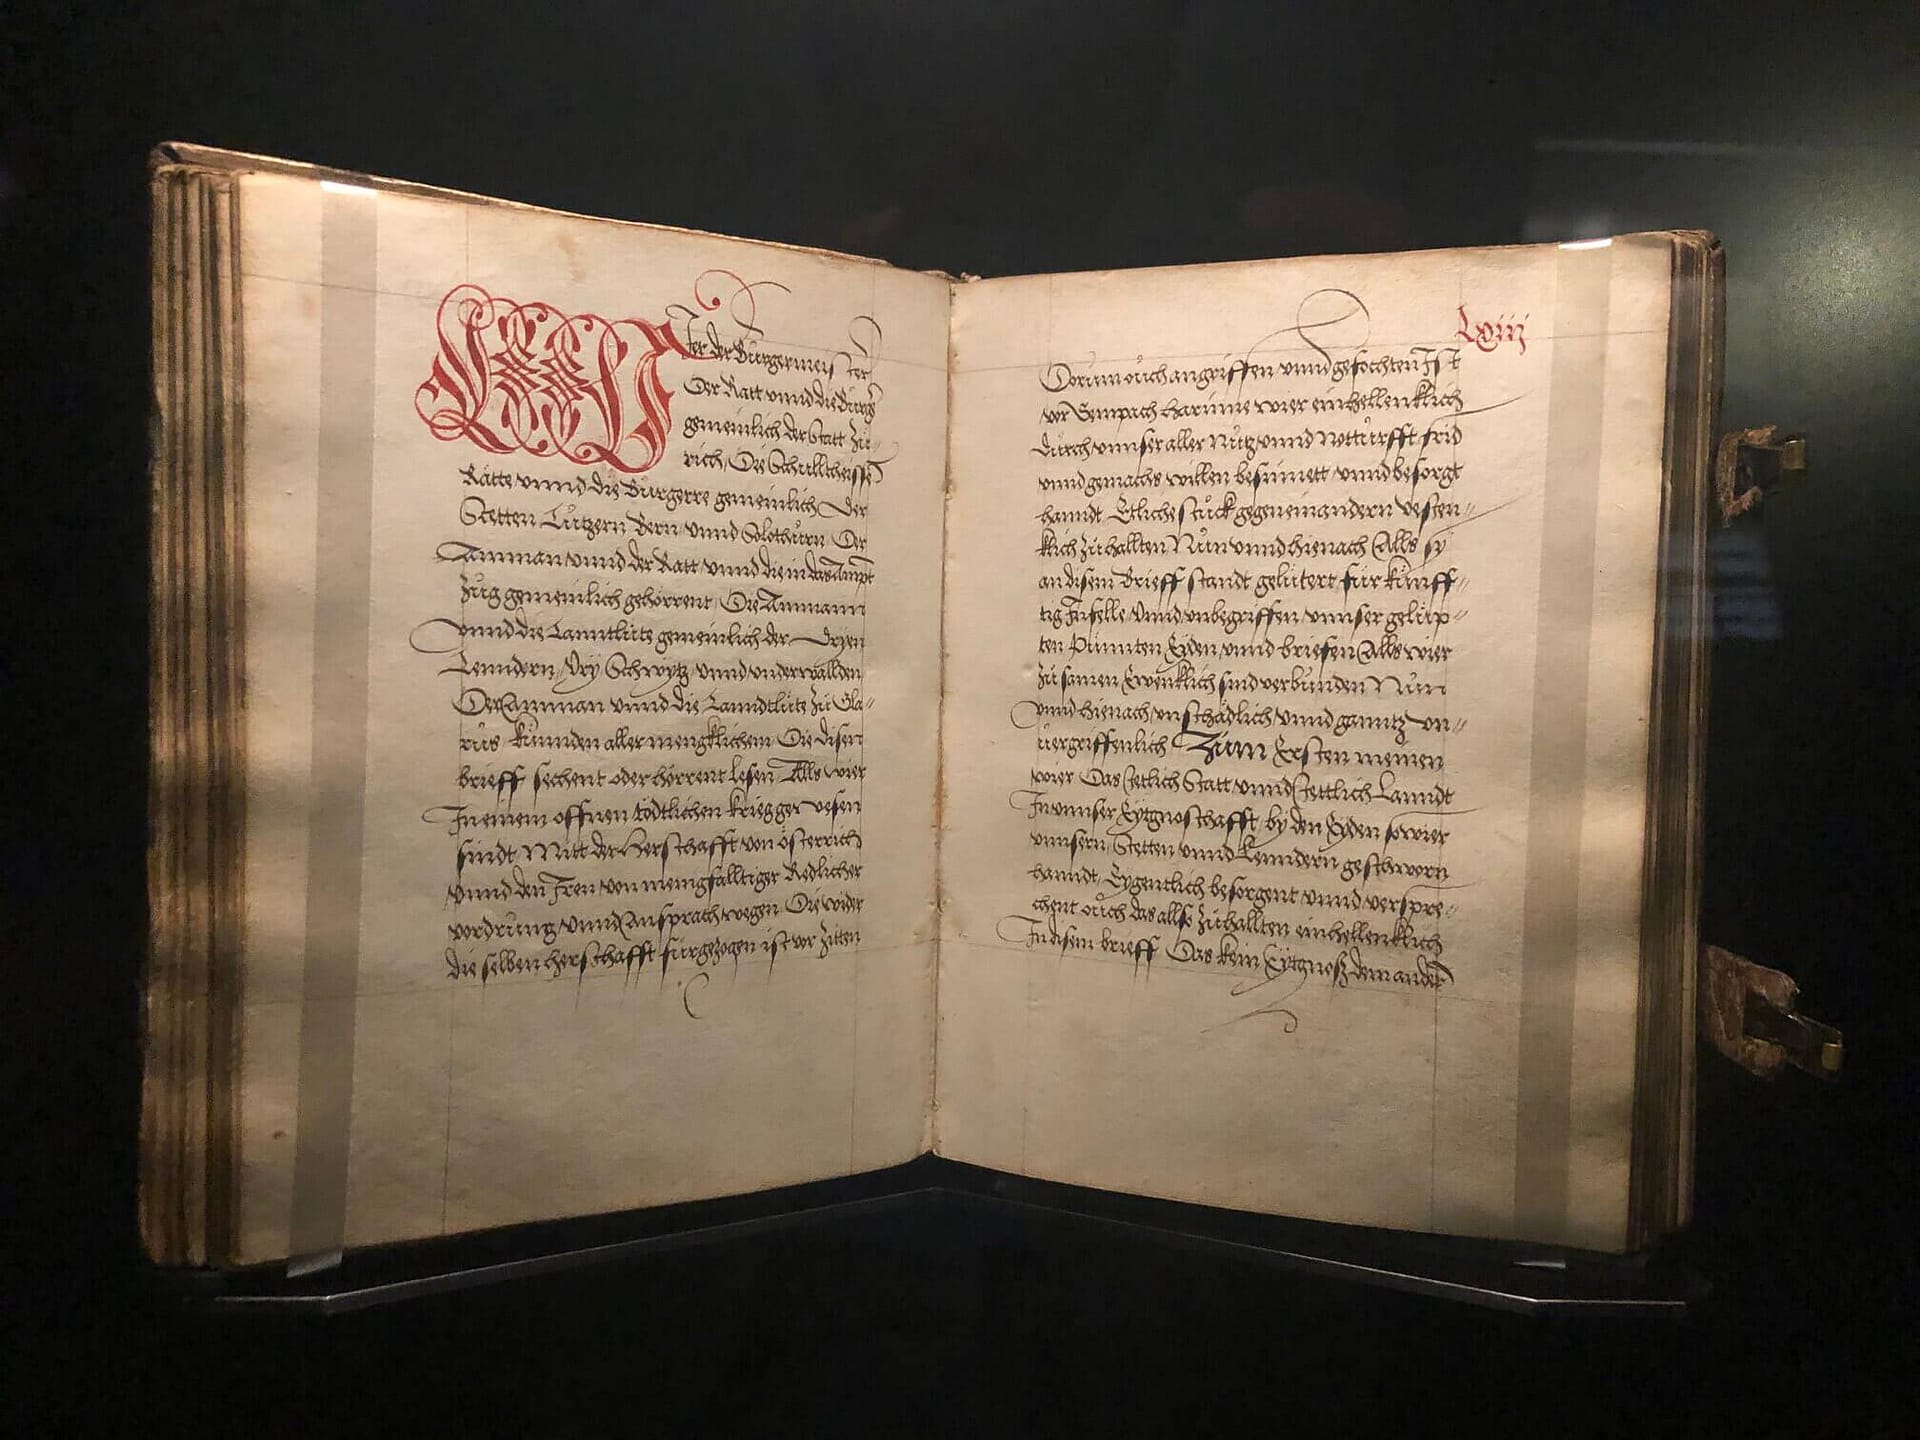 Wier der Burgermeister
Der Ratt vnnd die Burg̃
gemeinlich der Statt Zü-
rich, Die Schulltheissē
Rätte vnnd die Burgerre gemeinlich Der
Stetten Lützern Bern vnnd Solothŭrn Der
Amman vnnd der Ratt vnnd die in das Ampt
Zŭg gemeinlich gehörrent, Die Ammann
vnnd die Lanntlüte gemeinlich der Dryen
Lenndern, Vry Schwytz vnnd vnderwallden
Der Amman vnnd die Lanndtlüte zü Gla-
rŭs, künnden aller mengklichem Die disen
brieff sechent oder hörrent lesen Alls wier
In einem offnen tödtlichen krieg gewesen
sindt Mitt der Herschafft von österrich
vnnd den Iren von menigfalltiger Redlicher
vordrŭng vnnd Ansprach wegen Die wider
die selben herschafft fürgezogen ist vor zitten
Lviij
Dorŭm oŭch angriffen vnnd gefochten Ist
vor Sempach harŭme wier einhellenklich
Dŭrch vnnser aller Nŭtz vnnd Notturfft frid
vnnd gemachs willen besinnett vnnd besorgt
hanndt Etliche stuck gegen einandern vesten-
klich zŭ hallten Nŭn vnnd hienach Alls sÿ
an disem Brieff standt gelütert für künff-
tig Infelle Vnnd vnbegriffen vnnser gelüp-
ten Pünnten Eyden vnnd briefen Alls wier
zŭ samen Ewenklich sind verbŭnden Nŭn
vnnd hienach vnschädlich vnnd ganntz vn-
üergriffenlich Zŭm Ersten meinen
wier Das Jetlich Statt vnnd Jettlich Lanndt
In vnnser Eytgnoschafft, bÿ den Eyden so wier
vnnsern Stetten vnnd Lenndern geschworn
hanndt, Eygentlich besorgent vnnd verspre-
chent oŭch das allso zŭ hallten einhellenklich
In disem brieff Das kein Eytgnosz dem andern